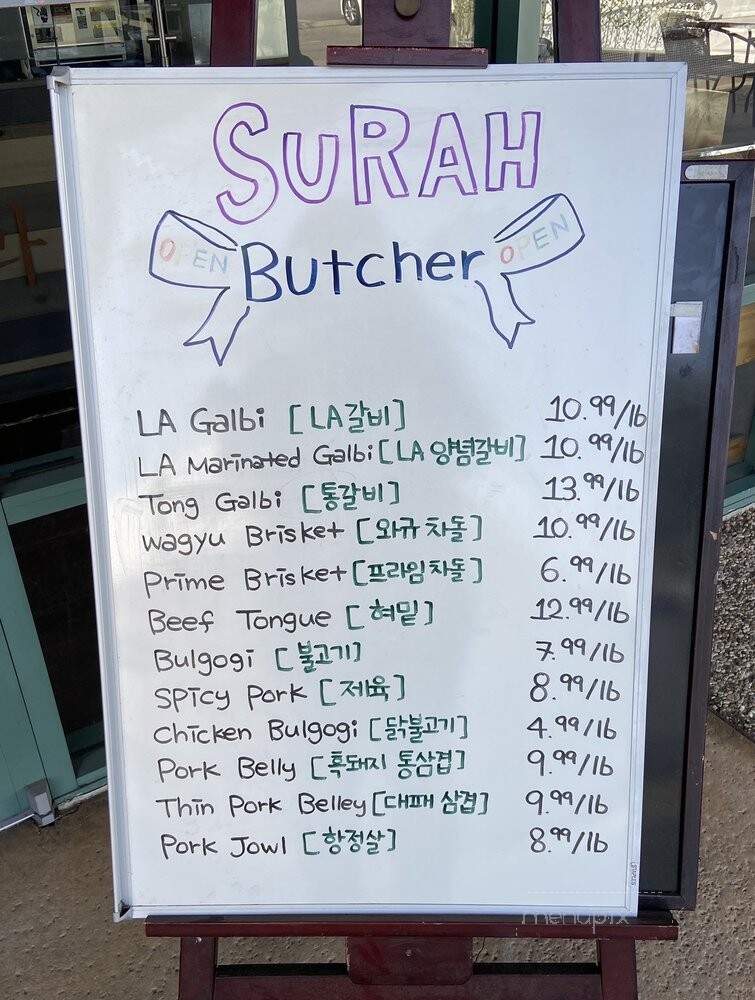 SURAH
OPEN Butcher OPEN
LA Galbi [LA갈비] 10.99/lb
LA Marinated Galbi [LA 양념갈비] 10.99/lb
Tong Galbi [통갈비] 13.99/lb
wagyu Brisket [와규 차돌] 10.99/lb
Prime Brisket [프라임차돌] 6.99/lb
Beef Tongue [혀밑] 12.99/lb
Bulgogi [불고기] 7.99/lb
Spicy Pork [제육] 8.99/lb
Chicken Bulgogi [닭불고기] 4.99/lb
Pork Belly [흑돼지 통삼겹] 9.99/lb
Thin Pork Belley [대패 삼겹] 9.99/lb
Pork Jowl [항정살] 8.99/lb
menupix